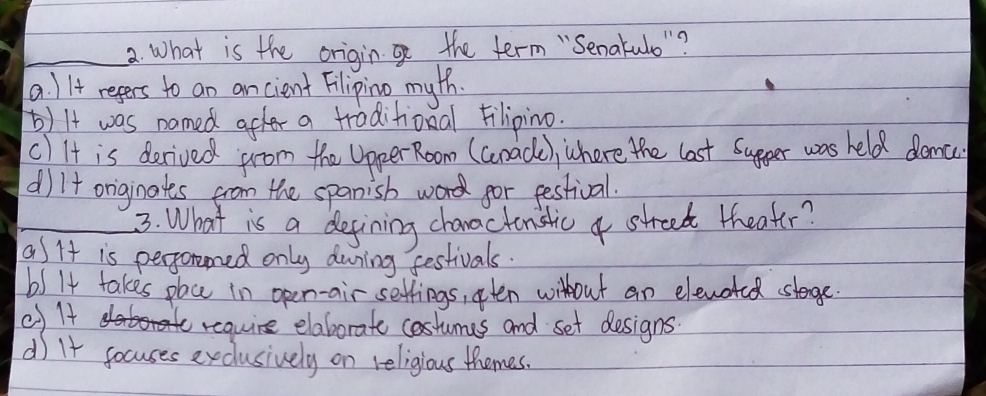 2. What is the origin of the term "Senakulo"?
a.) It refers to an ancient Filipino myth.
b) It was named after a traditional Filipino.
c) It is derived from the Upper Room (Cenacle), where the last supper was held dance.
d) It originates from the spanish word for festival.
3. What is a defining characteristic of street theater?
a) It is performed only during festivals.
b) It takes place in open-air settings, often without an elevated stage.
c) It elaborate require elaborate costumes and set designs.
d) It focuses exclusively on religious themes.